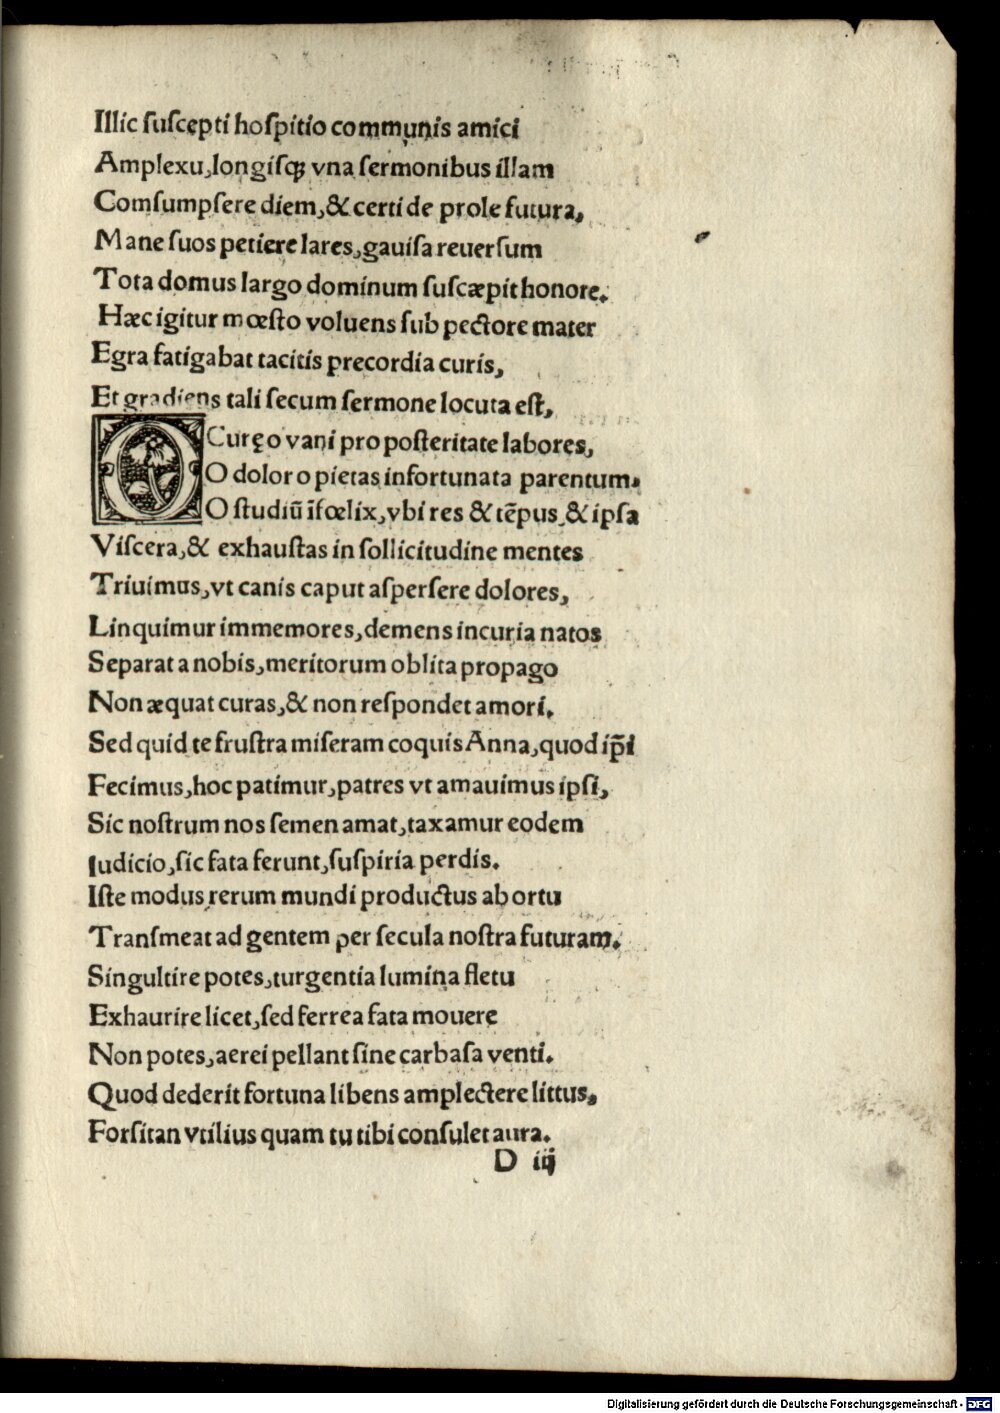 Illic ſuſcepti hoſpitio communis amici
Amplexu,longiſqꝫ vna ſermonibus illam
Comſumpſere diem,& certi de prole futura,
Mane ſuos petiere lares,gauiſa reuerſum
Tota domus largo dominum ſuſcæpit honore.
Hæc igitur mœſto voluens ſub pectore mater
Egra fatigabat tacitis precordia curis,
Et gradiens tali ſecum ſermone locuta eſt,
O Curęo vani pro poſteritate labores,
O dolor o pietas infortunata parentum.
O ſtudiū īfœlix,vbi res & tēpus,& ipſa
Viſcera,& exhauſtas in ſollicitudine mentes
Triuimus,vt canis caput aſperſere dolores,
Linquimur immemores,demens incuria natos
Separat a nobis,meritorum oblita propago
Non æquat curas,& non reſpondet amori.
Sed quid te fruſtra miſeram coquis Anna,quod ip̄i
Fecimus,hoc patimur,patres vt amauimus ipſi,
Sic noſtrum nos ſemen amat,taxamur eodem
Iudicio,ſic fata ferunt,ſuſpiria perdis.
Iſte modus rerum mundi productus ab ortu
Tranſmeat ad gentem per ſecula noſtra futuram.
Singultire potes,turgentia lumina fletu
Exhaurire licet,ſed ferrea fata mouere
Non potes,aerei pellant ſine carbaſa venti.
Quod dederit fortuna libens amplectere littus,
Forſitan vtilius quam tu tibi conſulet aura.
D iij
Digitalisierung gefördert durch die Deutsche Forschungsgemeinschaft - DFG